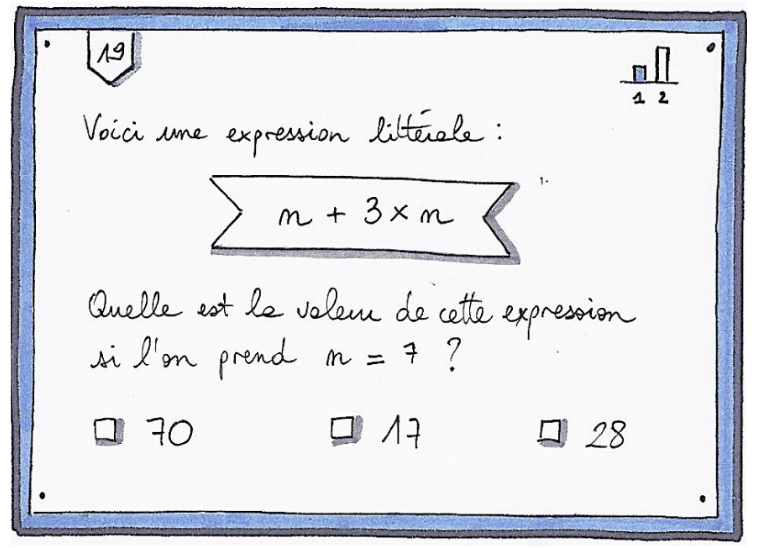 19
1 2
Voici une expression littérale :
n + 3 × n
Quelle est la valeur de cette expression
si l'on prend n = 7 ?
70 17 28